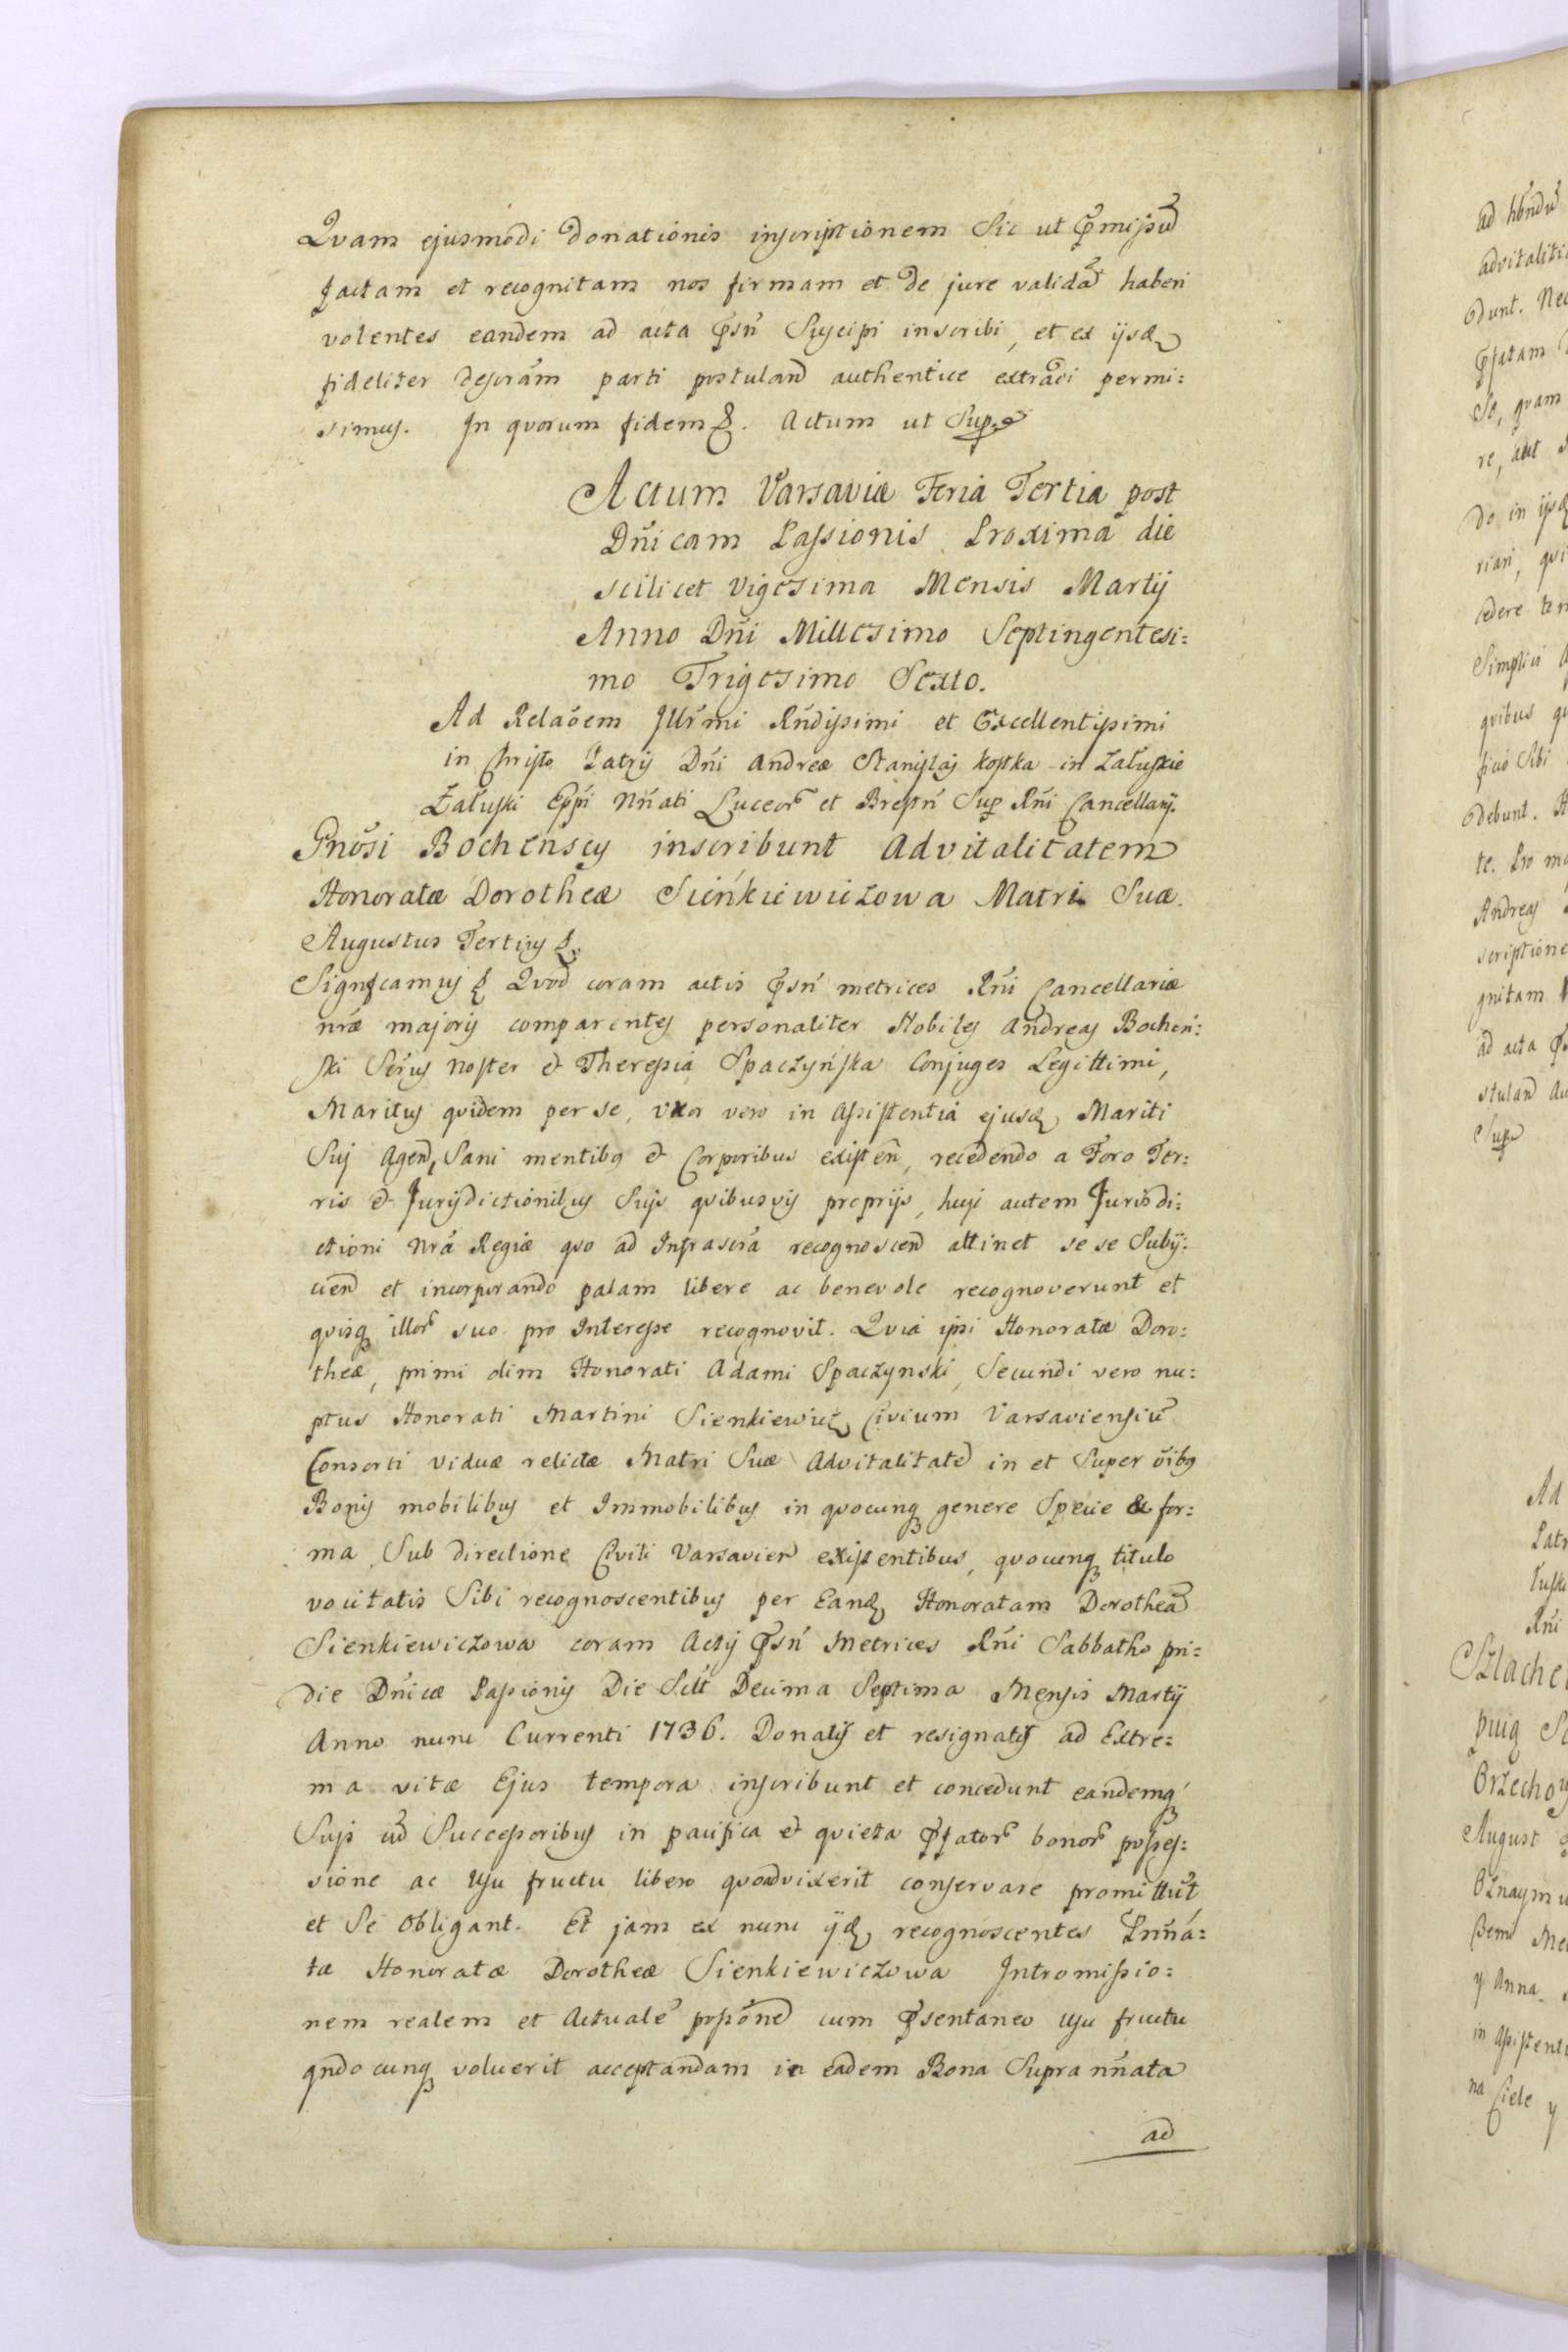 Qvam ejusmodi donationis inscriptionem Sic ut p̃missũ
factam et recognitam nos firmam et de jure validã haberi
volentes eandem ad acta p̃sñ Suscipi inscribi, et ex ijsdẽ
fideliter descrãm parti postulañd authentice extradi permi:
simus. In qvorum fidem &. Actum ut Supra
Actum Varsaviæ Feria Tertia post
Dñicam Passionis Proxima die
scilicet Vigesima Mensis Martij
Anno Dñi Millesimo Septingentesi:
mo Trigesimo Sexto.
Ad Relaõem Illr̃mi Rñdissimi et Excellentissimi
in Christo Patris Dñi Andreæ Stanislaj Kostka in Załuskie
Załuski Eppi Nñati Luceor̃ et Brestñ Sup̃ Rñi Cancellarij.
Gnõsi Bochenscy inscribunt Advitalitatem
Honoratæ Dorotheæ Sieńkiewiczowa Matri Suæ.
Augustus Tertius &.
Signifcamus & Qvod coram actis p̃sñ metrices Rñi Cancellariæ
nr̃æ majoris comparentes personaliter Nobiles Andreas Bocheń:
ski Ser̃us Noster & Theressia Spaczyńska Conjuges Legittimi,
Maritus qvidem per se, vxor vero in Assistentia ejusdẽ Mariti
Sui Ageñd, Sani mentibq & Corporibus existeñ, recedendo a Foro Ter:
ris & Jurisdictionibus Suis qvibusvis proprijs, huic autem Jurisdi:
ctioni Nr̃a Regiæ qvo ad Infrascr̃a recognosceñd attinet se se Subij:
cieñd et incorporando palam libere ac benevole recognoverunt et
qvisq illor̃ suo pro Interesse recognovit. Qvia ipsi Honoratæ Doro:
theæ, primi olim Honorati Adami Spaczynski, Secundi vero nu:
ptus Honorati Martini Sienkiewicz Civium Varsaviensiũ
Consorti viduæ relictæ Matri Suæ Advitalitatẽ in et Super õibq
Bonis mobilibus et Immobilibus in qvocunq genere Specie & for:
ma Sub directione Civili Varsavieñ existentibus, qvocunq titulo
vocitatis Sibi recognoscentibus per Eandẽ Honoratam Dorotheã
Sienkiewiczowa coram Actis P̃sñ Metrices Rñi Sabbatho pri:
die Dñicæ Passionis Die Sclt̃ Decima Septima Mensis Martij
Anno nunc Currenti 1736. Donatis et resignatis ad Extre:
ma vitæ Ejus tempora inscribunt et concedunt eandemq
Suis cũ Successoribus in pacifica & qvieta p̃fator̃ bonor̃ posses:
sione ac Usu fructu libero qvoadvixerit conservare promittũt
et Se Obligant. Et jam ex nunc ijdẽ recognoscentes Prñna:
tæ Honoratæ Dorotheæ Sienkiewiczowa Intromissio:
nem realem et Actualẽ possõnẽ cum p̃sentaneo Usu fructu
qñdocunq voluerit acceptandam in eadem Bona Supra nñata
ad